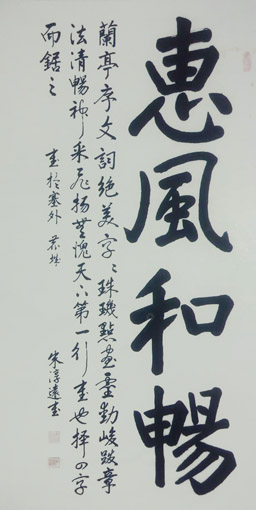 惠風和暢
蘭亭序文詞絕美字字珠璣點畫靈動峻跋章
法清暢神采飛揚無愧天下第一行書也擇四字
而鋸之
書於塞外
朱淳遠書